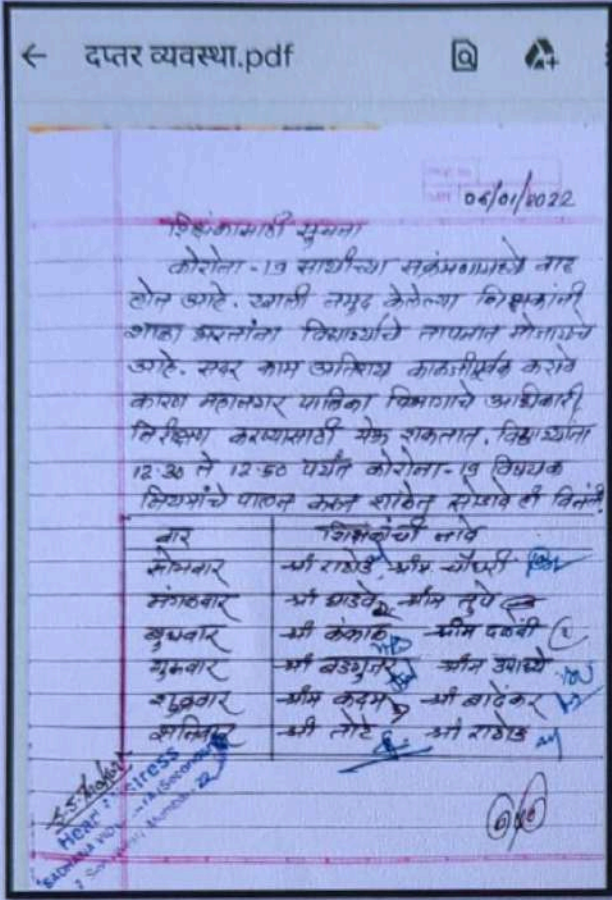 दप्तर व्यवस्था.pdf
06/01/2022
शिक्षकांसाठी सूचना
कोरोना-19 साथीच्या संक्रमणामध्ये वाढ
होत आहे. खाली नमूद केलेल्या शिक्षकांनी
शाळा भरतांना विद्यार्थ्यांचे तापमान मोजायचे
आहे. सदर काम अतिशय काळजीपूर्वक करावे
कारण महानगर पालिका विभागाचे अधिकारी
निरीक्षण करण्यासाठी येऊ शकतात. विद्यार्थ्यांना
12.30 ते 12.50 पर्यंत कोरोना-19 विषयक
नियमांचे पालन करून शाळेत सोडावे ही विनंती.
वार शिक्षकांची नावे
सोमवार श्री राठोड श्रीम चौधरी
मंगळवार श्री धाडवे श्रीम तुपे
बुधवार श्री कंकाळ श्रीम दळवी
गुरुवार श्री बडगुजर श्रीम उपाध्ये
शुक्रवार श्रीम कदम श्री बांदेकर
शनिवार श्री तोटे श्री राठोड
Head Mistress
SADHANA (Secondary)
Mumbai - 22